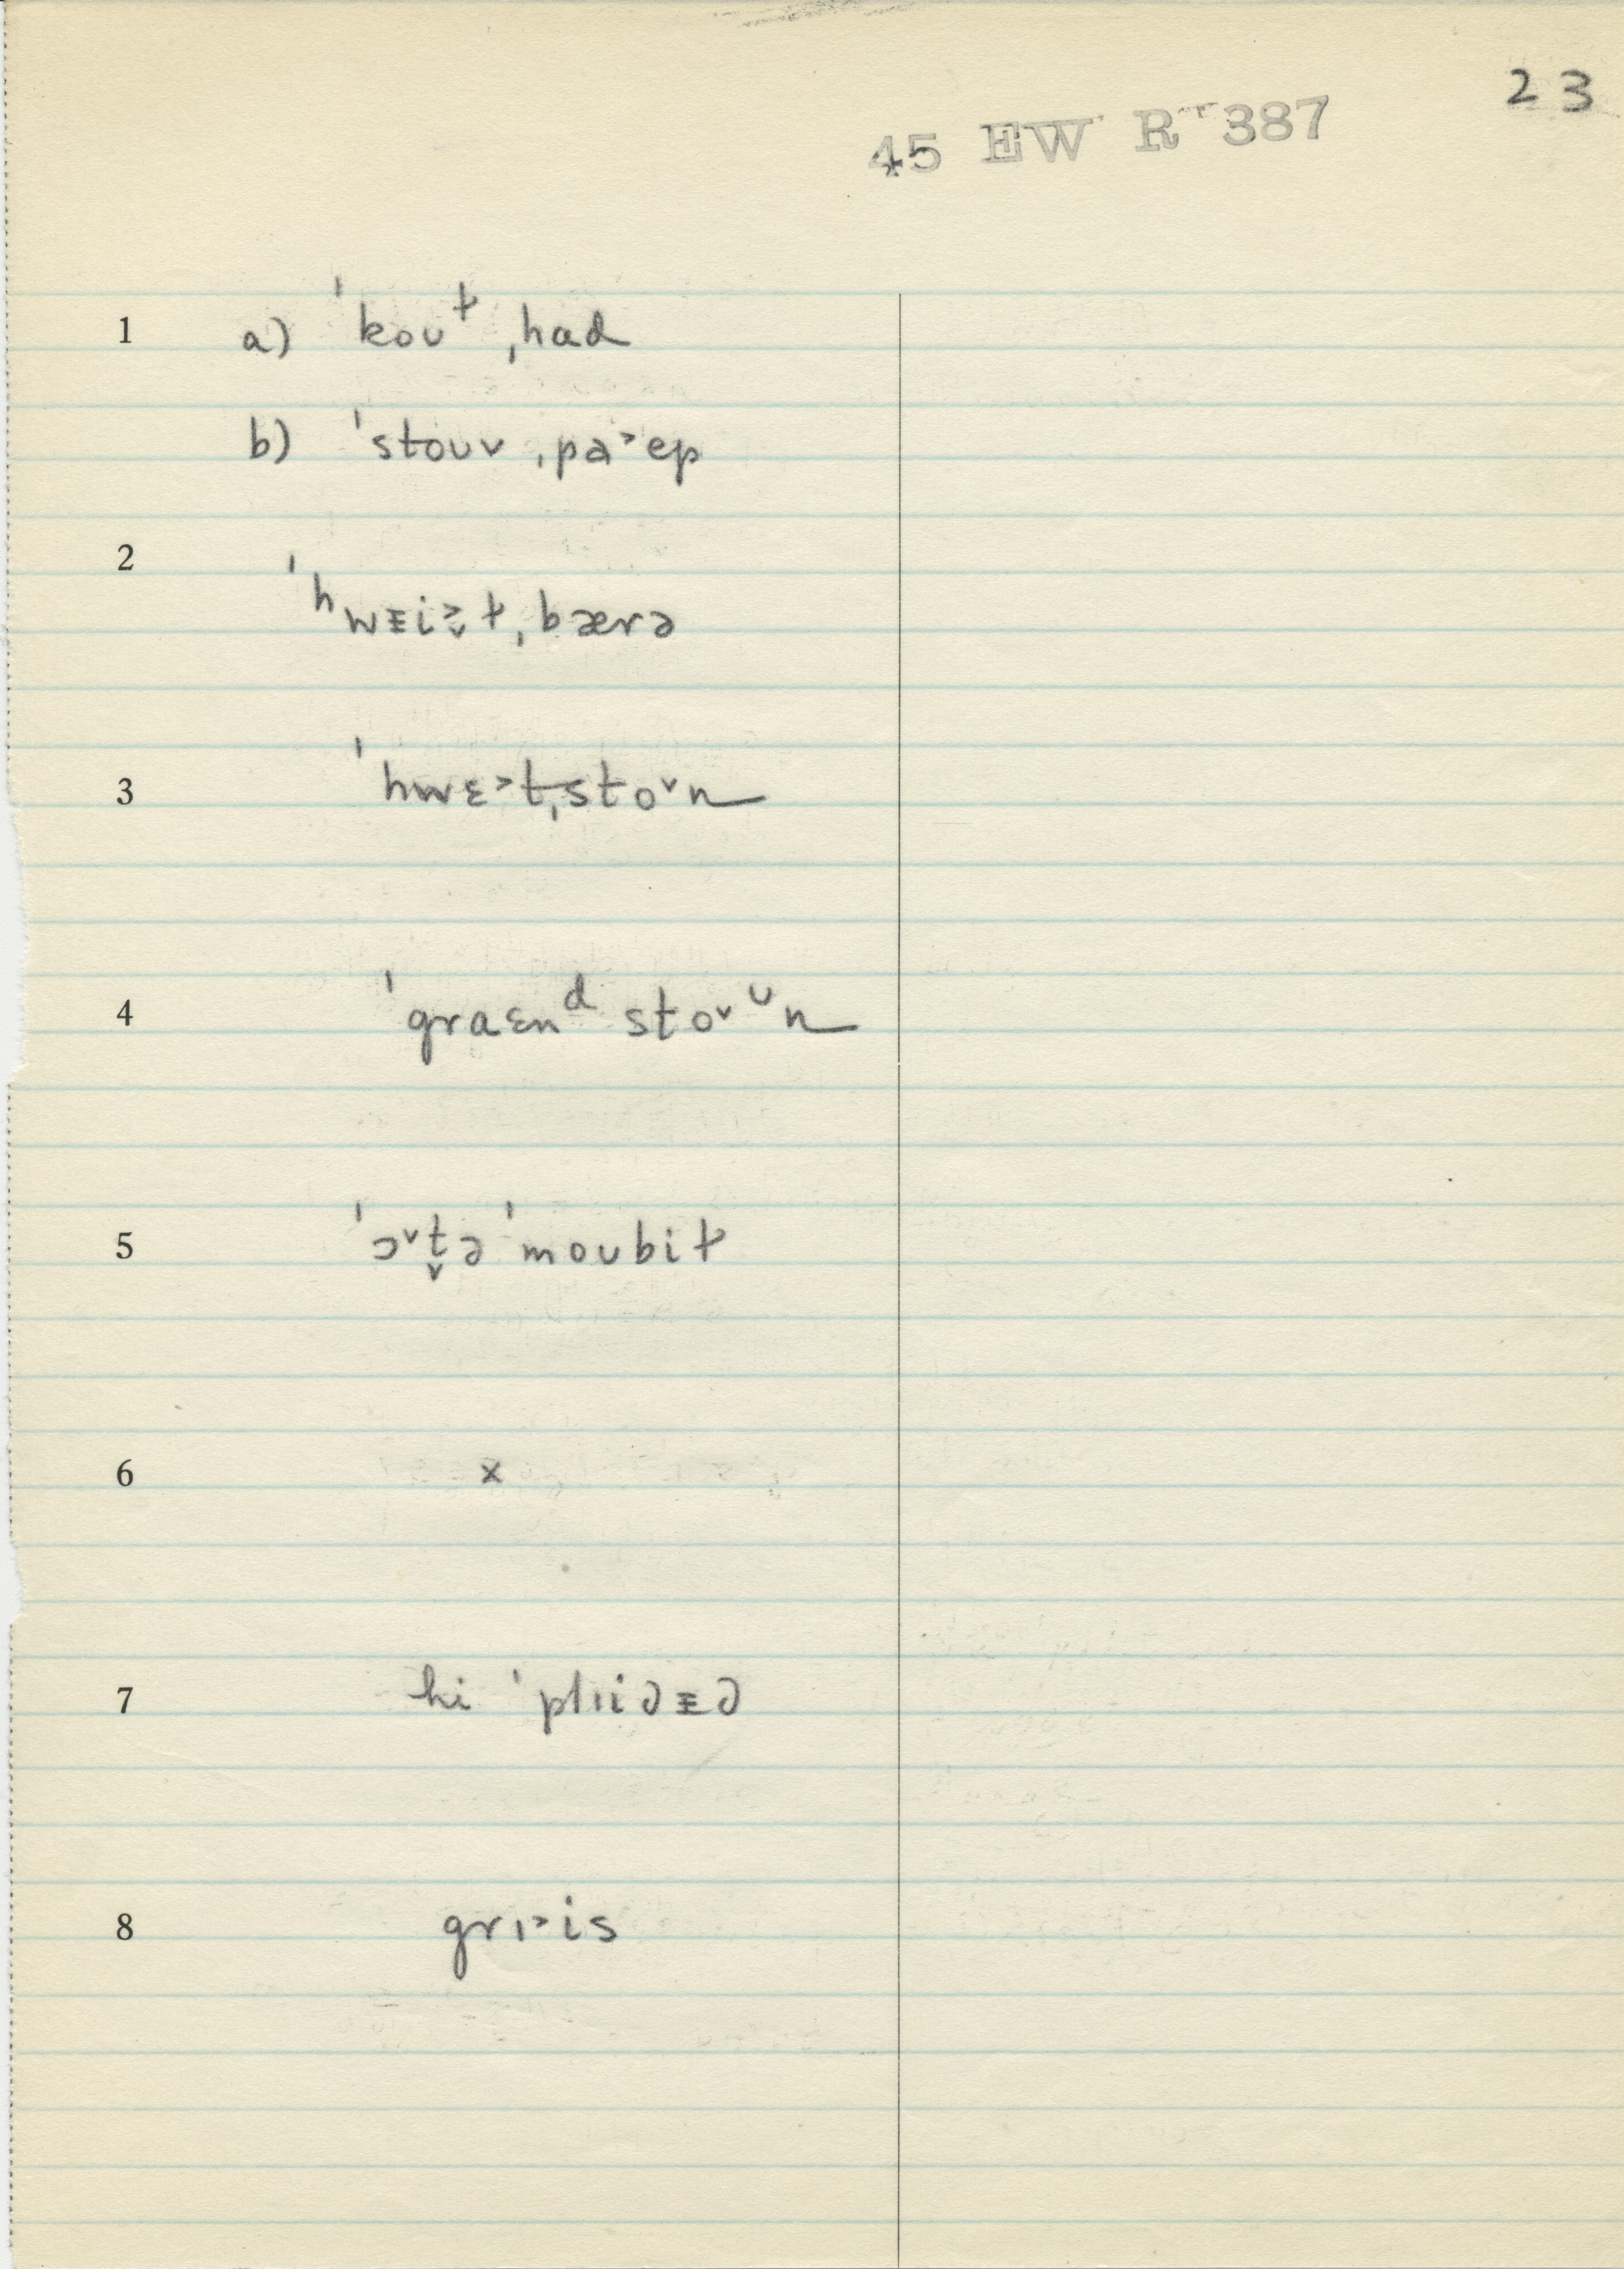 23
45 EW R 387
1 a) ˈkoʊᵗ̵ ˌhad
b) ˈstoʊv ˌpa˃ɛp
2 ˈʰwᴇi˃̬ɫ ˌbærə
3 ˈhwɛ˃t ˌsto˅n
4 ˈgraɛnᵈ sto˅ᶷn
5 ˈɔ˅t̬ə ˈmoʊbiɫ
6 x
7 hi ˈplɪi∂ᴇ∂
8 grɪ˃is